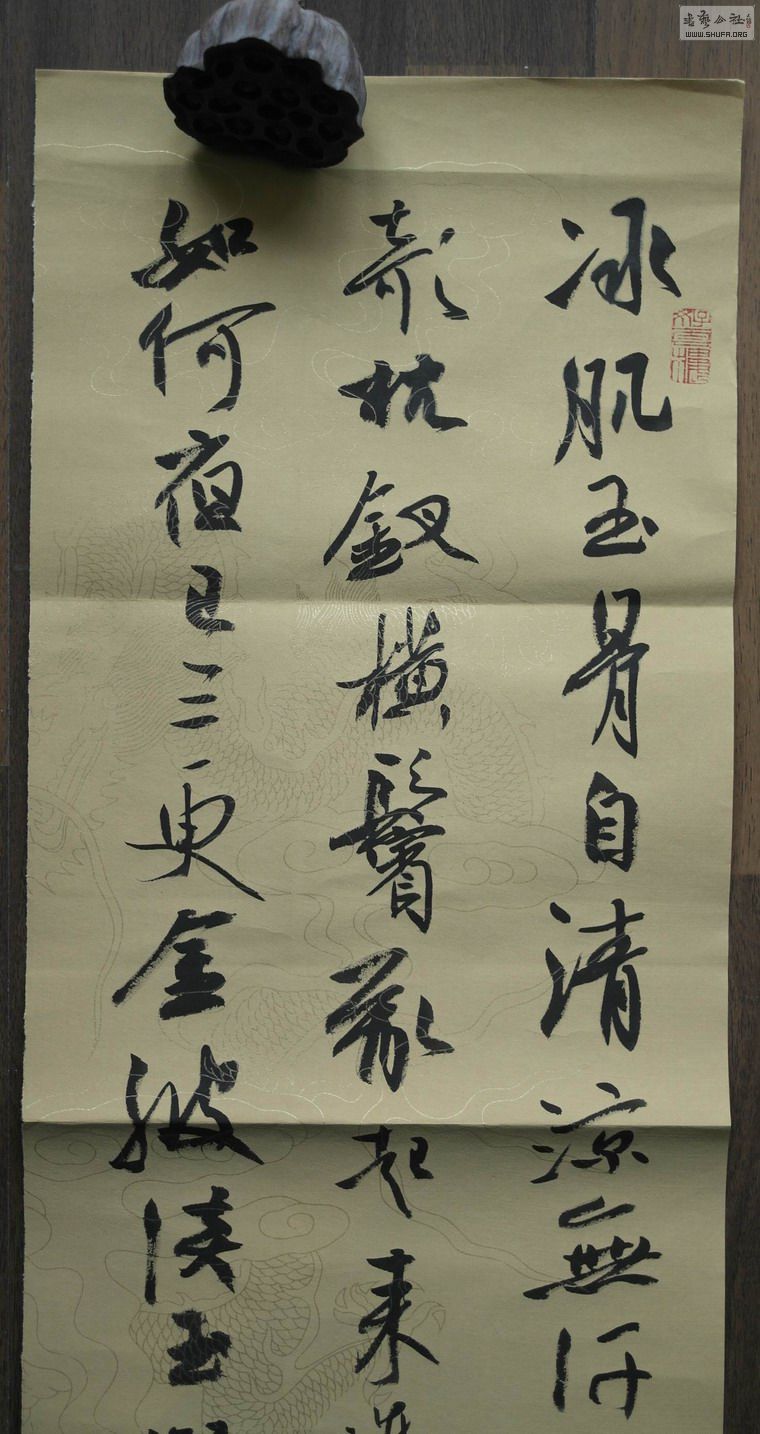 冰肌玉骨自清凉無汗
欹枕釵橫鬢亂起来
如何夜已三更金波淡玉
WWW.SHUFA.ORG